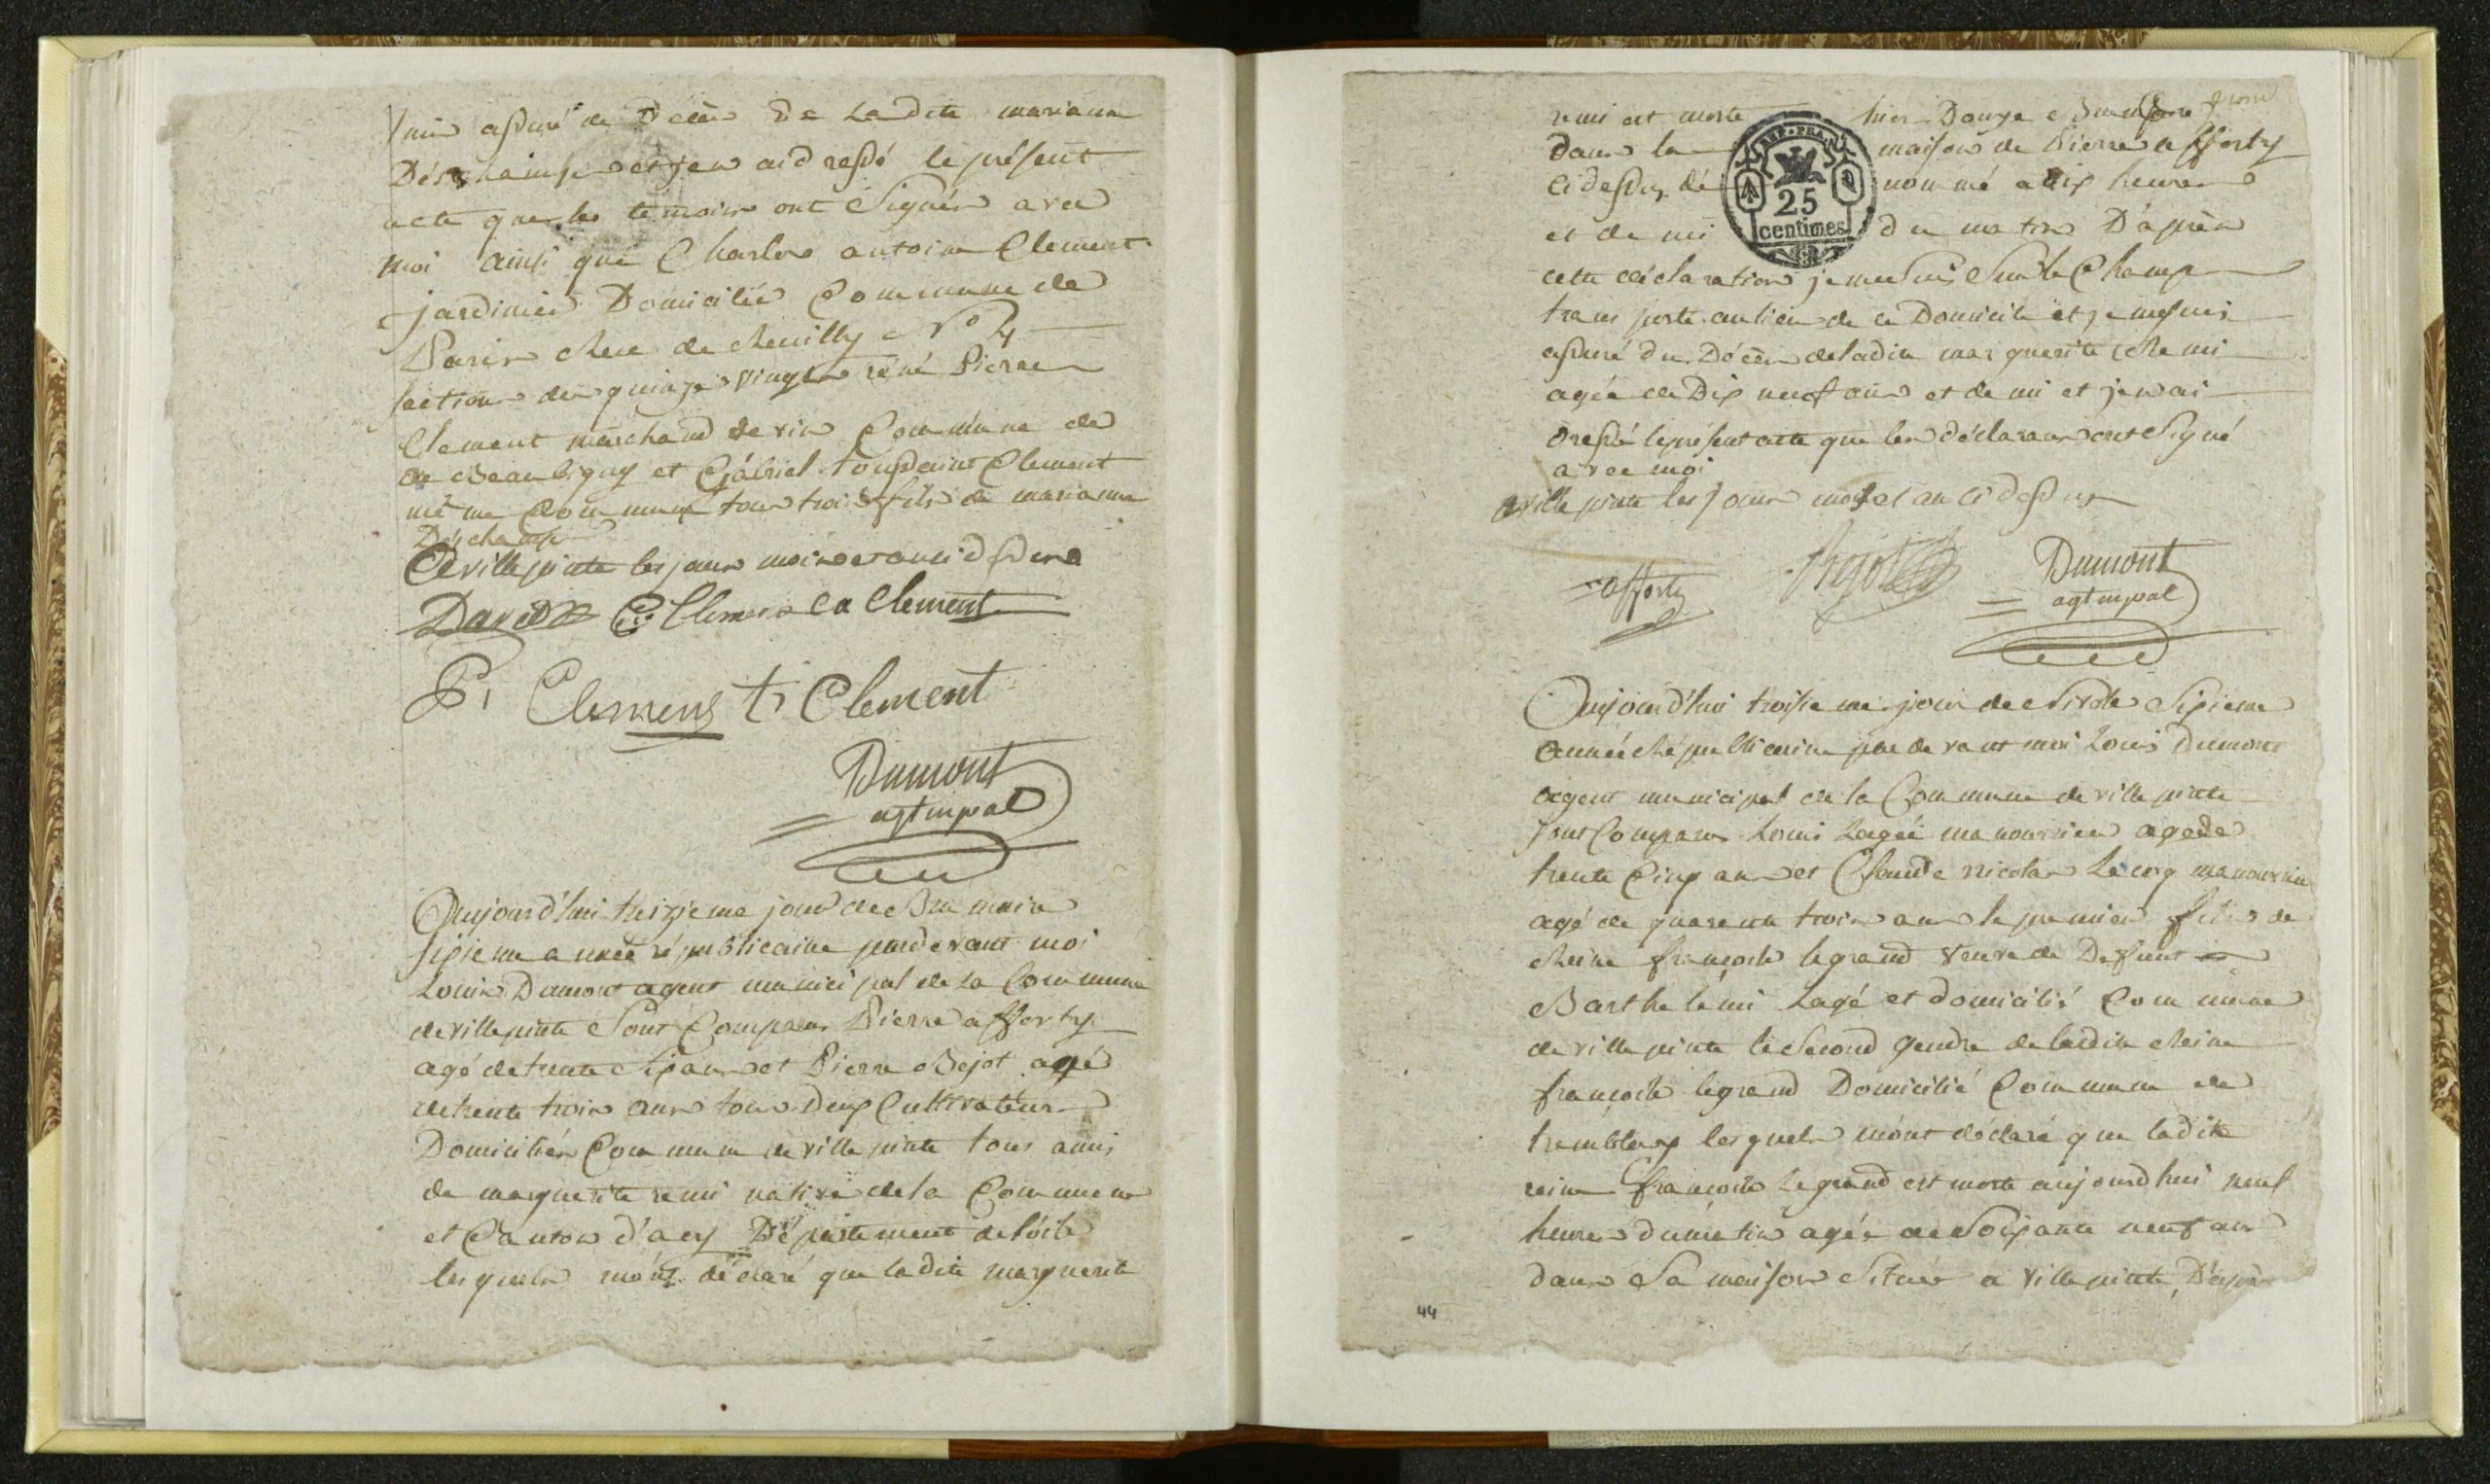 suis assuré du décès de Ladite mariann
Déschamps et j'en ai dressé le présent
acte que les temoins ont Signés avec
moi ainsi que Charles antoine Clement
jardinier Domicilié Commune de
Paris Rue de Reuilly N° 4
section des quinze vingts réné Pierre
Clement marchand de vin Commune de
de Beaubigny et Gabriel toussaint Clement
même Commune tous trois fils de marianne
Déschamps
a villepinte les jour mois et an ci dessus
David C: Clement ca Clement
P. Clement t. Clement
Dumont
agt mpal
Aujourd'hui treizieme jour de Bru maire
sixieme année républicaine pardevant moi
Louis Dumont agent municipal de La Commune
de villepinte Sont Comparus Pierre afforty
agé de trente Six ans et Pierre Bejot agé
de trente trois ans tous Deux Cultivateurs
Domiciliés Commune de villepinte tous amis
de marguerite remi native de la Commune
et Canton d'acy Département de loise
les quels mónt déclaré que ladite marguerite
remi est morte hier Douze Brumaire
dans la maison de Pierre afforty
ci dessus dé nommé a dix heures
et de mi du matin D'après
cette déclaration je me suis Sur le Champ
trans porté au lieu de ce Domicile et je me suis
assuré du Décès de ladite marguerite Remi
agée de Dix neuf ans et de mi et j'en ai
dressé le présent acte que les déclarans ont Signé
avec moi
a ville pinte les jour mois et an ci dessus
afforty Bejot Dumont
agt mpal
Aujourd'hui troisie me jour de Nivose Sixieme
année Républicaine par devant moi Louis Dumont
agent municipal de la Commune de ville pinte
sont Comparus Louis Lagéé manouvrier agé de
trente Cinq ans et Claude nicolas Lecoq manouvrier
agé de quarente trois ans le premier fils de
Reine françoise legrand veuve de Defunt
Barthelémi Lagé et domicilié Commune
de ville pinte le Second gendre de ladite Reine
françoise legrand Domicilié Commune de
tremblay les quels mónt déclaré que ladite
reine françoise Legrand est morte aujourdhui neuf
heures du matin agée de Soixante neuf ans
dans Sa maison Située a ville pinte, D'après
RÉP. FRA.
25
centimes
44